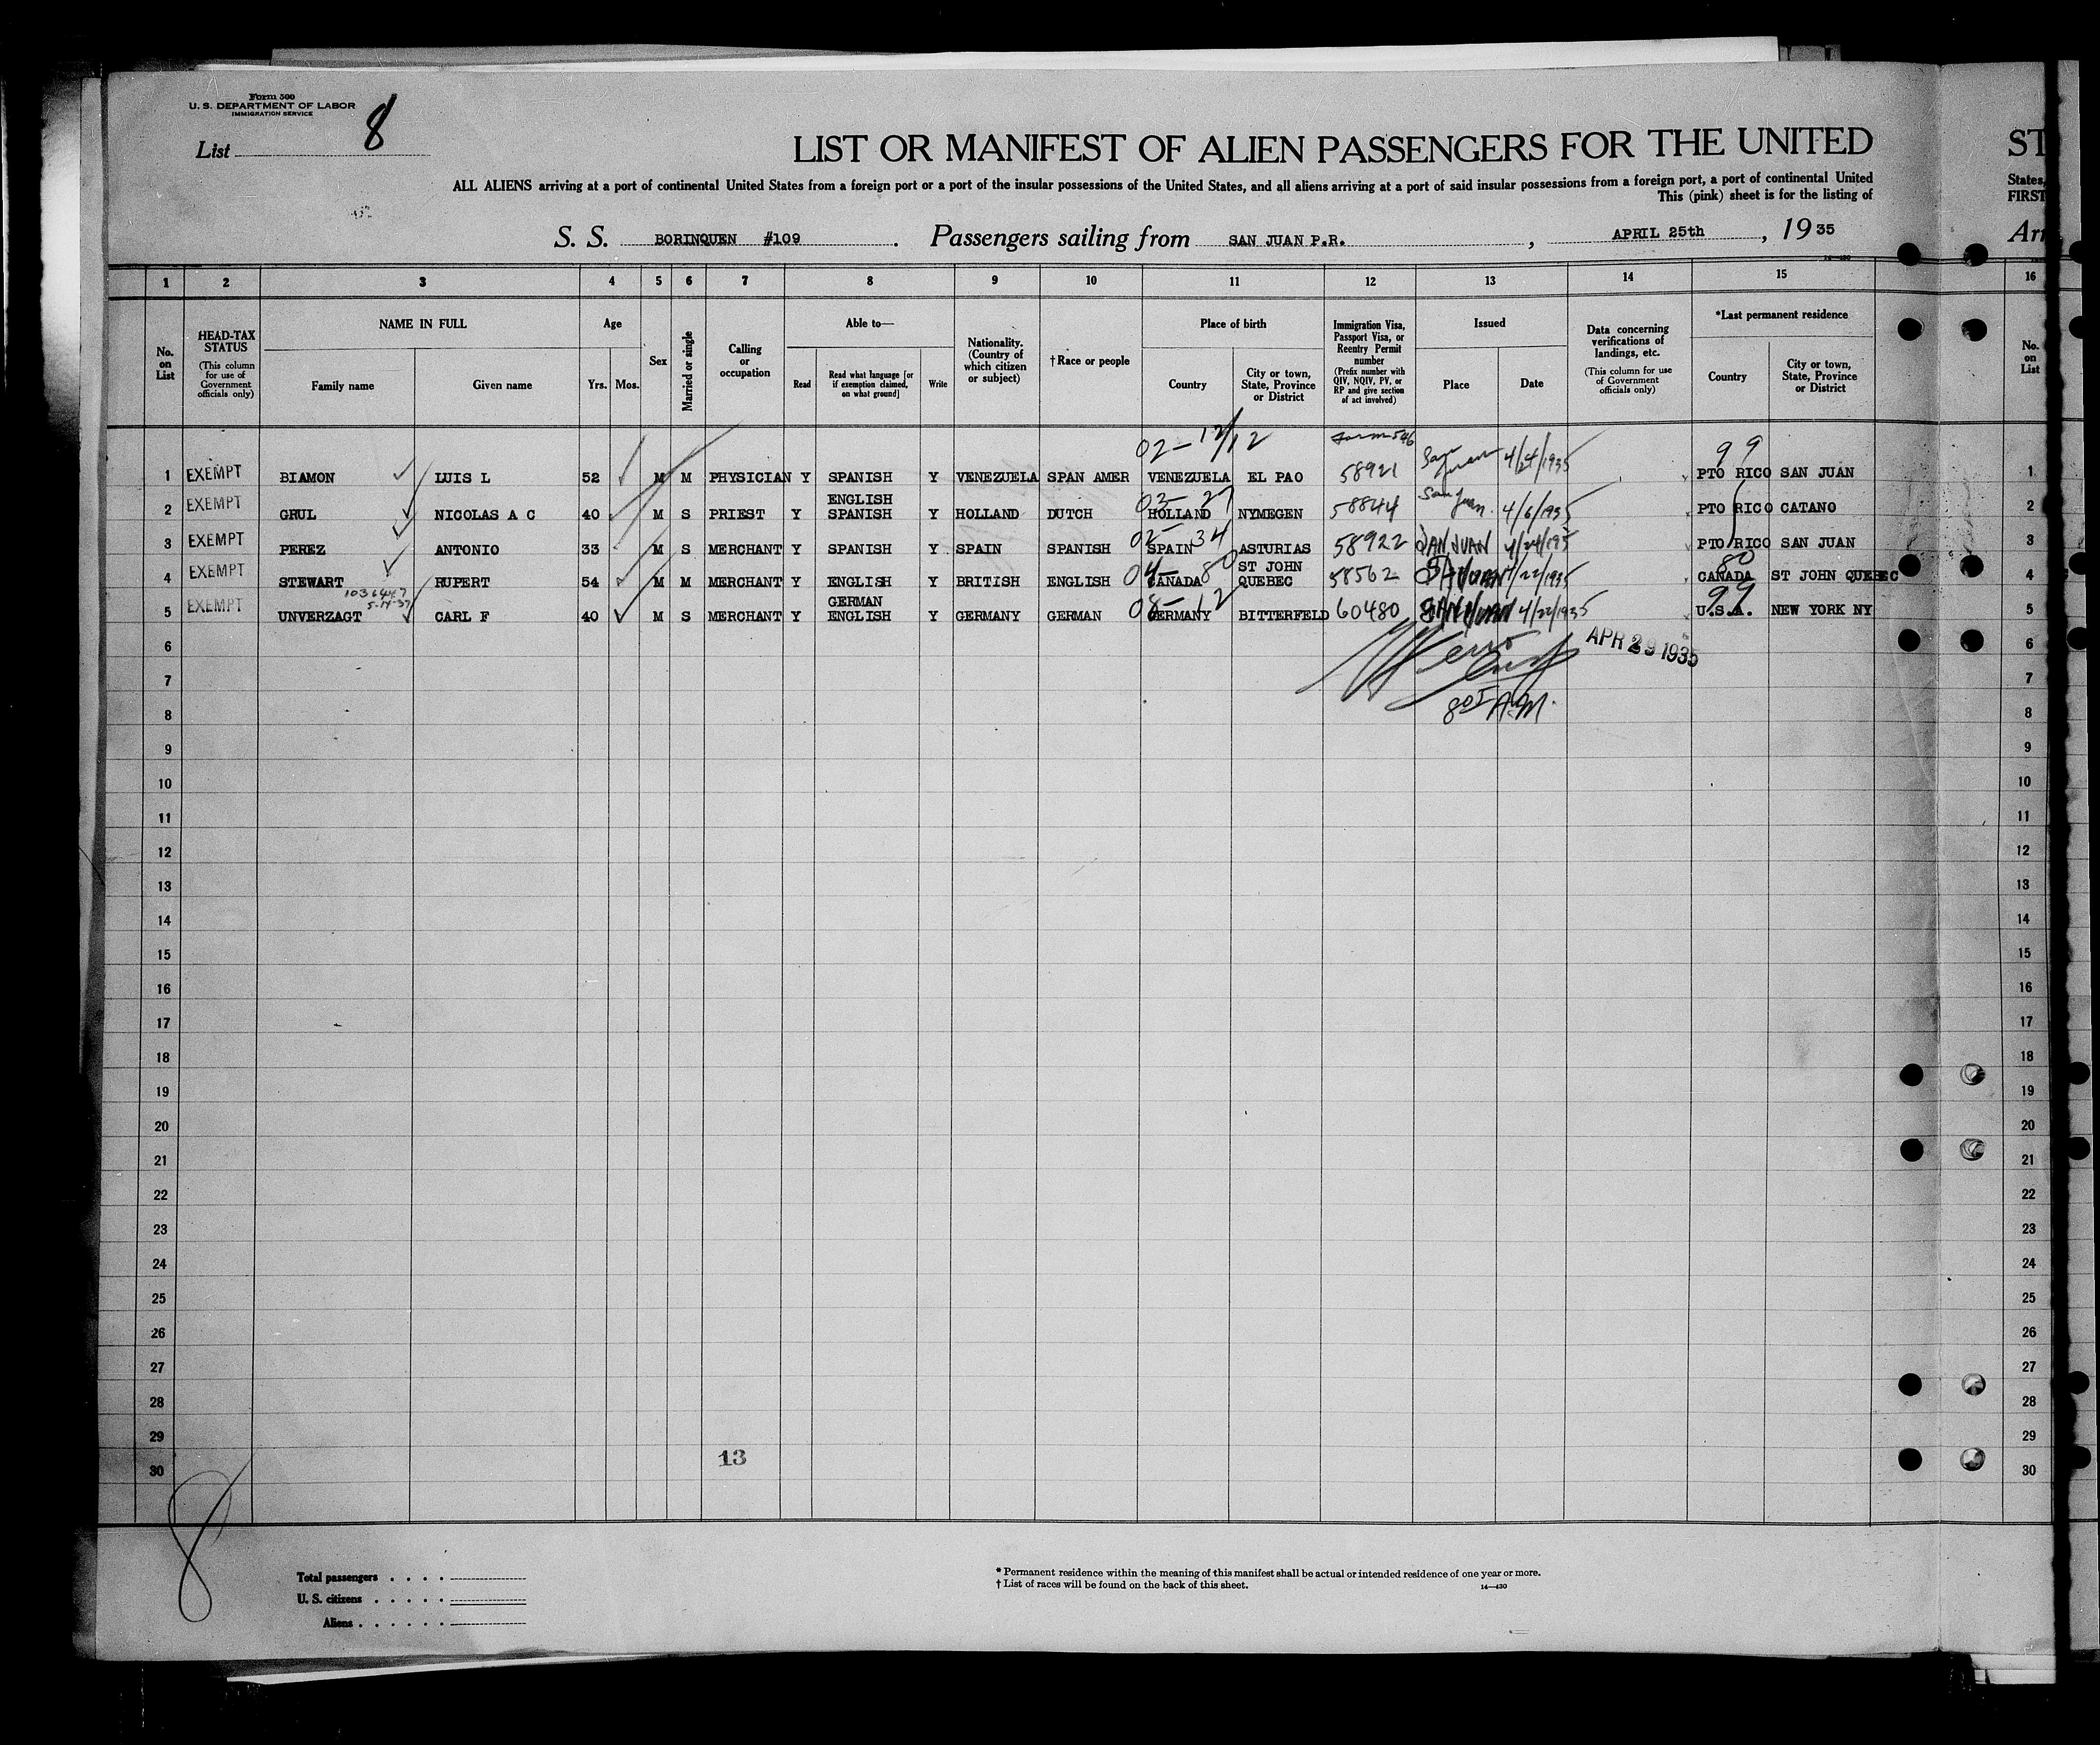 Form 500
U. S. DEPARTMENT OF LABOR
IMMIGRATION SERVICE
List 8
LIST OR MANIFEST OF ALIEN PASSENGERS FOR THE UNITED
ST
ALL ALIENS arriving at a port of continental United States from a foreign port or a port of the insular possessions of the United States, and all aliens arriving at a port of said insular possessions from a foreign port, a port of continental United
States,
This (pink) sheet is for the listing of
FIRST
S. S. BORINQUEN #109. Passengers sailing from SAN JUAN P.R., APRIL 25th, 1935
Arr
1 2 3 4 5 6 7 8 9 10 11 12 13 14 15 16
No. on List
HEAD-TAX STATUS
(This column for use of Government officials only)
NAME IN FULL
Family name
Given name
Age
Yrs. Mos.
Sex
Married or single
Calling or occupation
Able to—
Read
Read what language [or if exemption claimed, on what ground]
Write
Nationality. (Country of which citizen or subject)
†Race or people
Place of birth
Country
City or town, State, Province or District
Immigration Visa, Passport Visa, or Reentry Permit number
(Prefix number with QIV, NQIV, PV, or RP and give section of act involved)
Issued
Place
Date
Data concerning verifications of landings, etc.
(This column for use of Government officials only)
*Last permanent residence
Country
City or town, State, Province or District
No. on List
02-12/12 Form 546 99
1 EXEMPT BIAMON LUIS L 52 M M PHYSICIAN Y SPANISH Y VENEZUELA SPAN AMER VENEZUELA EL PAO 58921 San Juan 4/24/1935 PTO RICO SAN JUAN 1
ENGLISH 02-27
2 EXEMPT GRUL NICOLAS A C 40 M S PRIEST Y SPANISH Y HOLLAND DUTCH HOLLAND NYMEGEN 58844 San Juan 4/6/1935 PTO RICO CATANO 2
02-34
3 EXEMPT PEREZ ANTONIO 33 M S MERCHANT Y SPANISH Y SPAIN SPANISH SPAIN ASTURIAS 58922 SAN JUAN 4/24/195 PTO RICO SAN JUAN 3
04-80 ST JOHN 80
4 EXEMPT STEWART RUPERT 54 M M MERCHANT Y ENGLISH Y BRITISH ENGLISH CANADA QUEBEC 58562 SAN JUAN 4/22/1935 CANADA ST JOHN QUEBEC 4
1036447
5-14-37
GERMAN 08-12 99
5 EXEMPT UNVERZAGT CARL F 40 M S MERCHANT Y ENGLISH Y GERMANY GERMAN GERMANY BITTERFELD 60480 SAN JUAN 4/22/1935 U.S.A. NEW YORK NY 5
APR 29 1935
6 6
7 7
8 805 A.M. 8
9 9
10 10
11 11
12 12
13 13
14 14
15 15
16 16
17 17
18 18
19 19
20 20
21 21
22 22
23 23
24 24
25 25
26 26
27 27
28 28
29 29
13
30 30
8
Total passengers
U. S. citizens
Aliens
* Permanent residence within the meaning of this manifest shall be actual or intended residence of one year or more.
† List of races will be found on the back of this sheet.
14—430